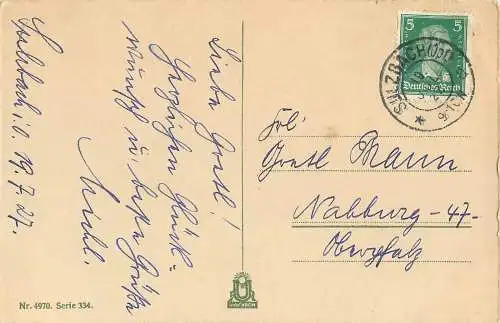 Sulzbach i. O. 19.7.27.
Liebe Gretl!
Herzlichen Glück-
wunsch u. beste Grüße
Michl.
Frl.
Gretl Mann
Nabburg -47-
Oberpfalz
5 5
Deutsches Reich
SULZBACH (Op
Nr. 4970. Serie 334.